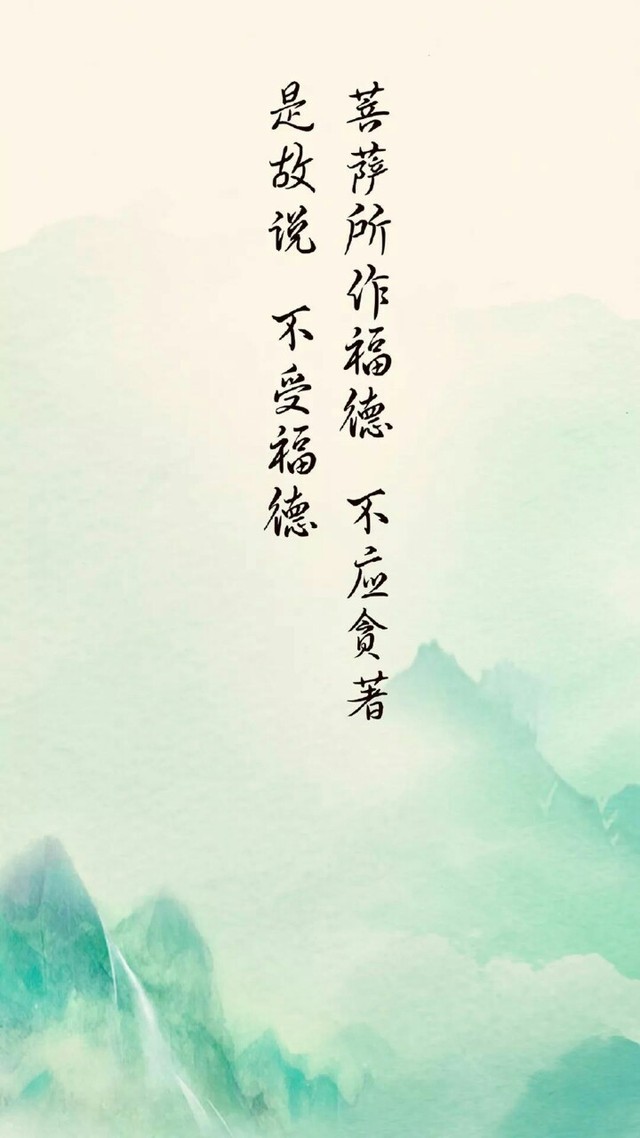 菩萨所作福德 不应贪著
是故说 不受福德